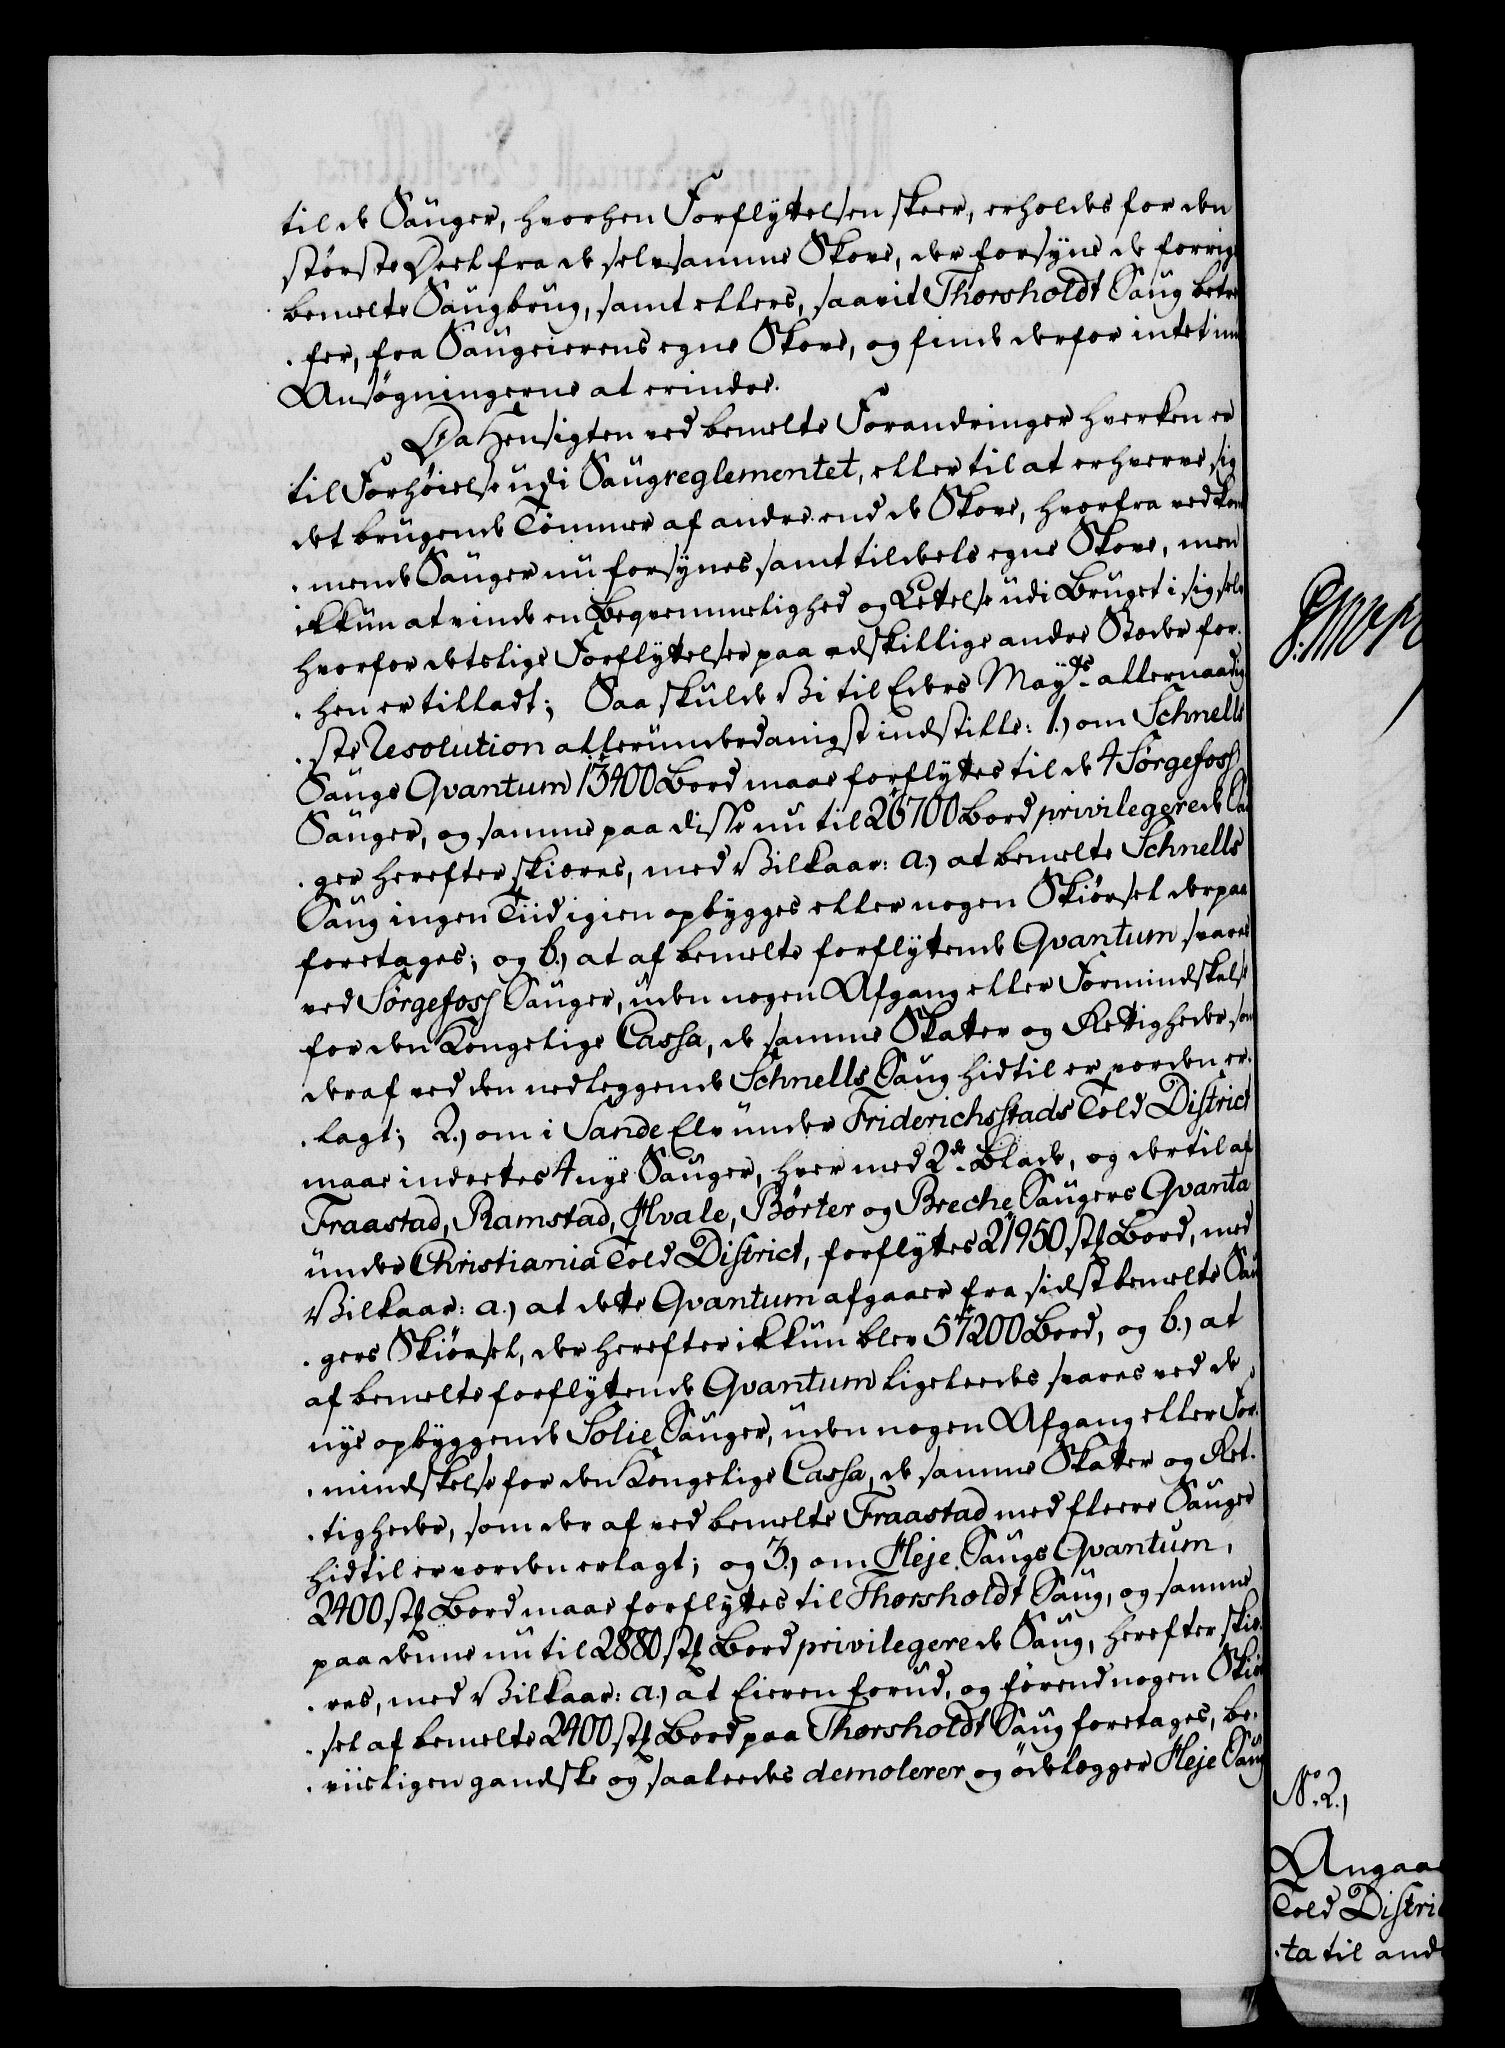 til de Sauger, hvorhen Forflyttelsen skeer, erholdes for den
største Deel fra de selvsamme Skove, der forsyne de forrig
bemelte Saugbrug, samt ellers, saavit Thorsholdt Saug betref
fer, fra Saugeierens egne Skove, og finde derfor intet imod
Ansøgningerne at erindre.
Da Hensigten ved bemelte Forandringer hverken er
til Forhøielse udi Saugreglementet, eller til at erhverve sig
det brugende Tømmer af andre end de Skove, hvorfra vedkom
mende Sauger nu forsynes samt tildeels egne Skove, men
ikkun at vinde en Beqvemmelighed og Lettelse udi Bruget i sig selv
hvorfor deslige Forflyttelser paa adskillige andre Steder for
hen er tilladt; Saa skulde Vi til Eders Mayts allernaadig
ste Resolution allerunderdanigst indstille: 1.) om Schnells
Saugs Qvantum 13400 Bord maae forflyttes til de 4 Sørgefoss
Sauger, og samme paa disse nu til 26700 Bord privilegerede Sau
ger herefter skiæres, med Vilkaar: a.) at bemelte Schnells
Saug ingen Tiid igien opbygges eller nogen Skiørsel derpaa
foretages; og b.) at af bemelte forflyttende Qvantum svares
ved Sørgefoss Sauger, uden nogen Afgang eller Formindskelse
for den Kongelige Cassa, de samme Skatter og Rettigheder som
deraf ved den nedleggende Schnells Saug hidtil er vorden er
lagt; 2.) om i Sande Elv under Friderichsstads Told District
maae indrettes 4 nye Sauger, hver med 2de Blade, og dertil af
Fraastad, Ramstad, Hvale, Børter og Breche Saugers Qvanta
under Christiania Told District, forflyttes 21950 st. Bord, med
Vilkaar: a.) at dette Qvantum afgaaer fra sidstbemelte Sau
gers Skiørsel, der herefter ikkun blev 57200 Bord, og b.) at
af bemelte forflyttende Qvantum ligeledes svares ved de
nye opbyggende Solie Sauger, uden nogen Afgang eller For
mindskelse for den Kongelige Cassa, de samme Skatter og Ret
tigheder, som der af ved bemelte Fraastad med fleere Sauger
hidtil er vorden erlagt; og 3.) om Heje Saugs Qvantum,
2400 st. Bord maae forflyttes til Thorsholdt Saug, og samme
paa denne nu til 2880 st. Bord privilegerede Saug, herefter skiæ
res, med Vilkaar: a.) at Eieren forud, og førend nogen Skiør
sel af bemelte 2400 st. Bord paa Thorsholdt Saug foretages, be
viisligen gandske og saaledes demolerer og ødelegger Heje Saug
No. 2.)
Angaa
Told Distri
ta til and